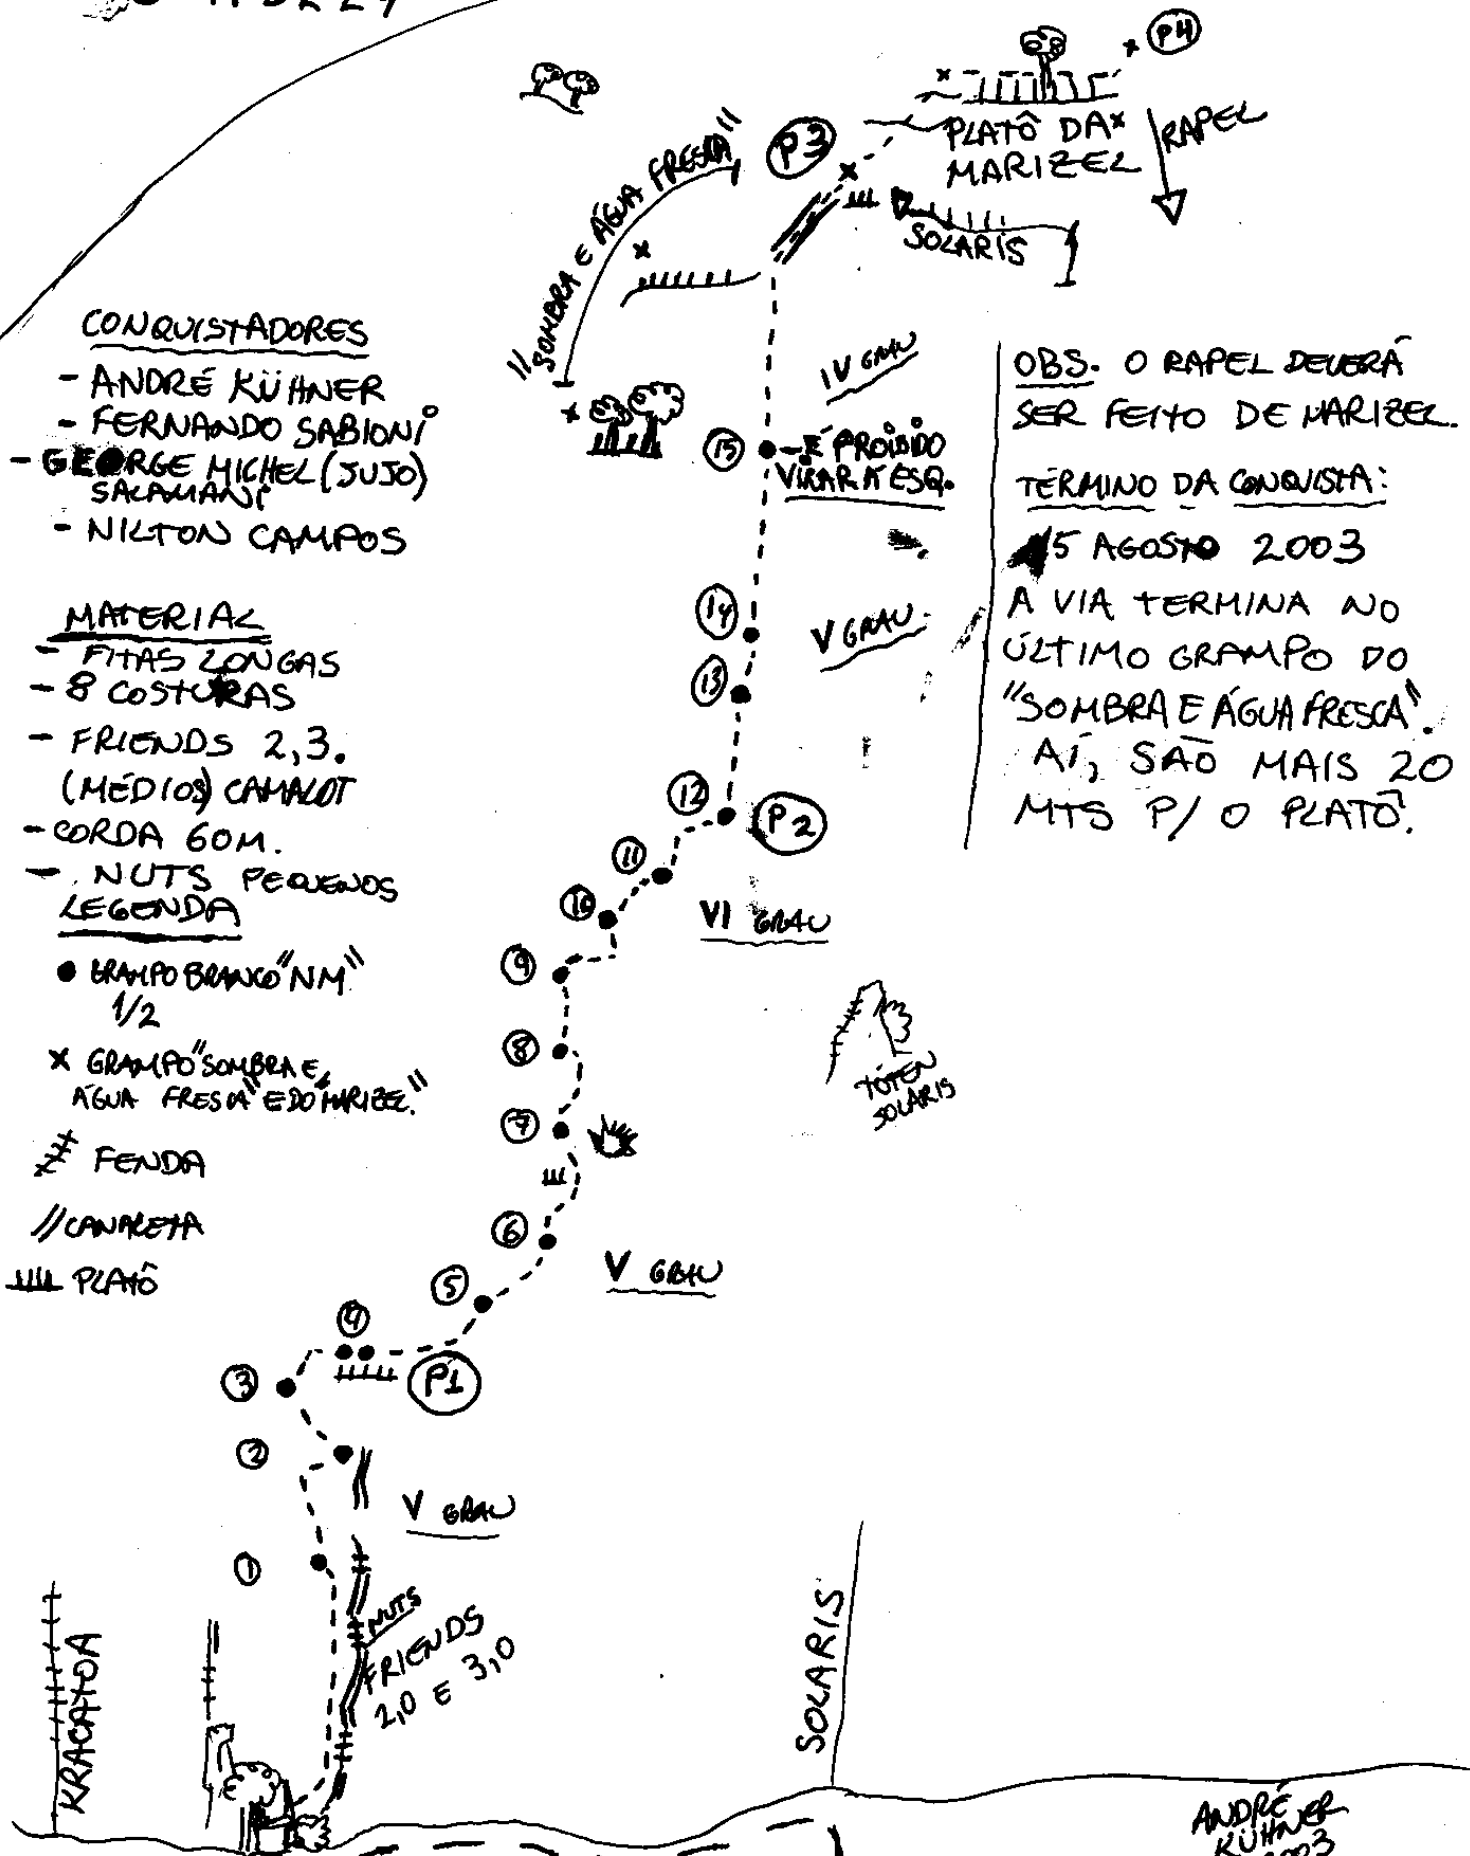 P4
PLATÔ DA
MARIZEL
RAPEL
P3
"SOMBRA E ÁGUA FRESCA"
SOLARIS
CONQUISTADORES
- ANDRÉ KÜHNER
- FERNANDO SABIONI
- GEORGE MICHEL (JUJO)
SALAMANI
- NILTON CAMPOS
MATERIAL
- FITAS LONGAS
- 8 COSTURAS
- FRIENDS 2,3.
(MÉDIOS) CAMALOT
- CORDA 60M.
- NUTS PEQUENOS
LEGENDA
GRAMPO BRANCO "NM"
1/2
X GRAMPO "SOMBRA E
ÁGUA FRESCA" E DO "MARIZEL"
FENDA
CANALETA
PLATÔ
IV GRAU
15
- É PROIBIDO
VIRAR À ESQ.
14
V GRAU
13
12
P2
11
10
VI GRAU
9
8
7
TÓTEN
SOLARIS
6
V GRAU
5
4
P1
3
2
V GRAU
1
NUTS
FRIENDS
2,0 E 3,0
KRACATOA
SOLARIS
OBS. O RAPEL DEVERÁ
SER FEITO DE MARIZEL.
TÉRMINO DA CONQUISTA:
15 AGOSTO 2003
A VIA TERMINA NO
ÚLTIMO GRAMPO DO
"SOMBRA E ÁGUA FRESCA".
AÍ, SÃO MAIS 20
MTS P/ O PLATÔ.
ANDRÉ
KÜHNER
2003